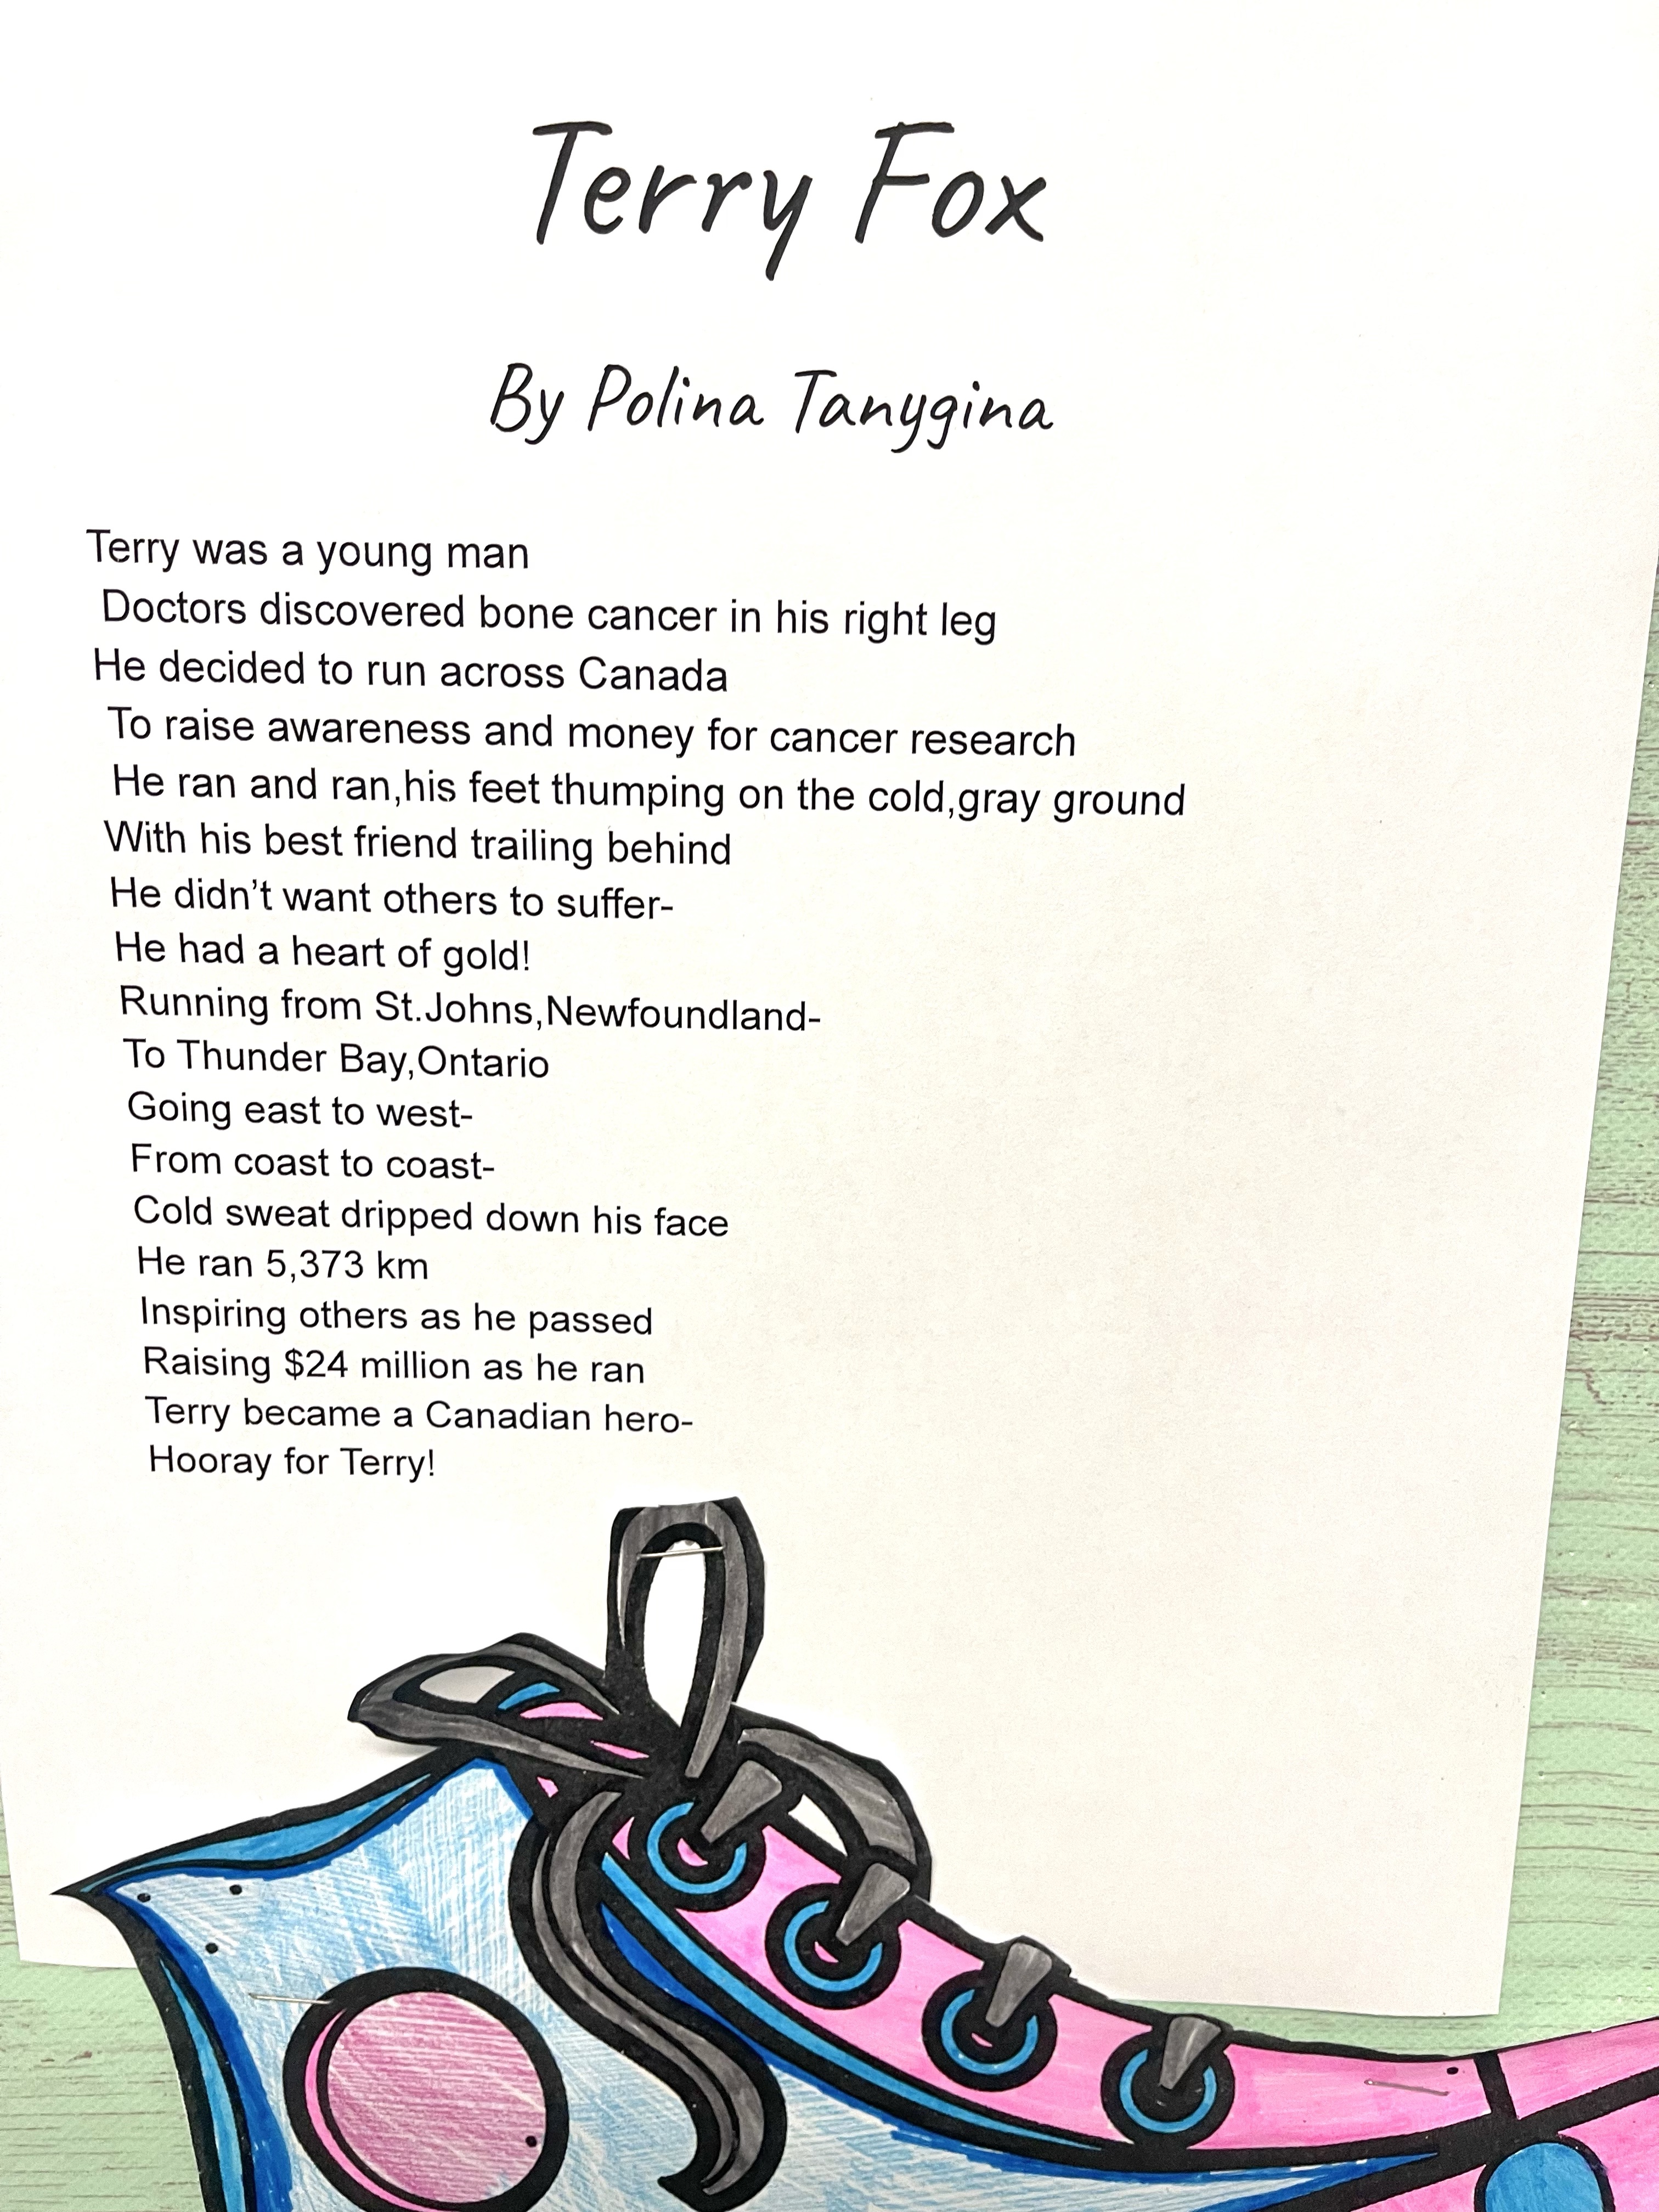 Terry Fox
By Polina Tanygina
Terry was a young man
Doctors discovered bone cancer in his right leg
He decided to run across Canada
To raise awareness and money for cancer research
He ran and ran,his feet thumping on the cold,gray ground
With his best friend trailing behind
He didn’t want others to suffer-
He had a heart of gold!
Running from St.Johns,Newfoundland-
To Thunder Bay,Ontario
Going east to west-
From coast to coast-
Cold sweat dripped down his face
He ran 5,373 km
Inspiring others as he passed
Raising $24 million as he ran
Terry became a Canadian hero-
Hooray for Terry!